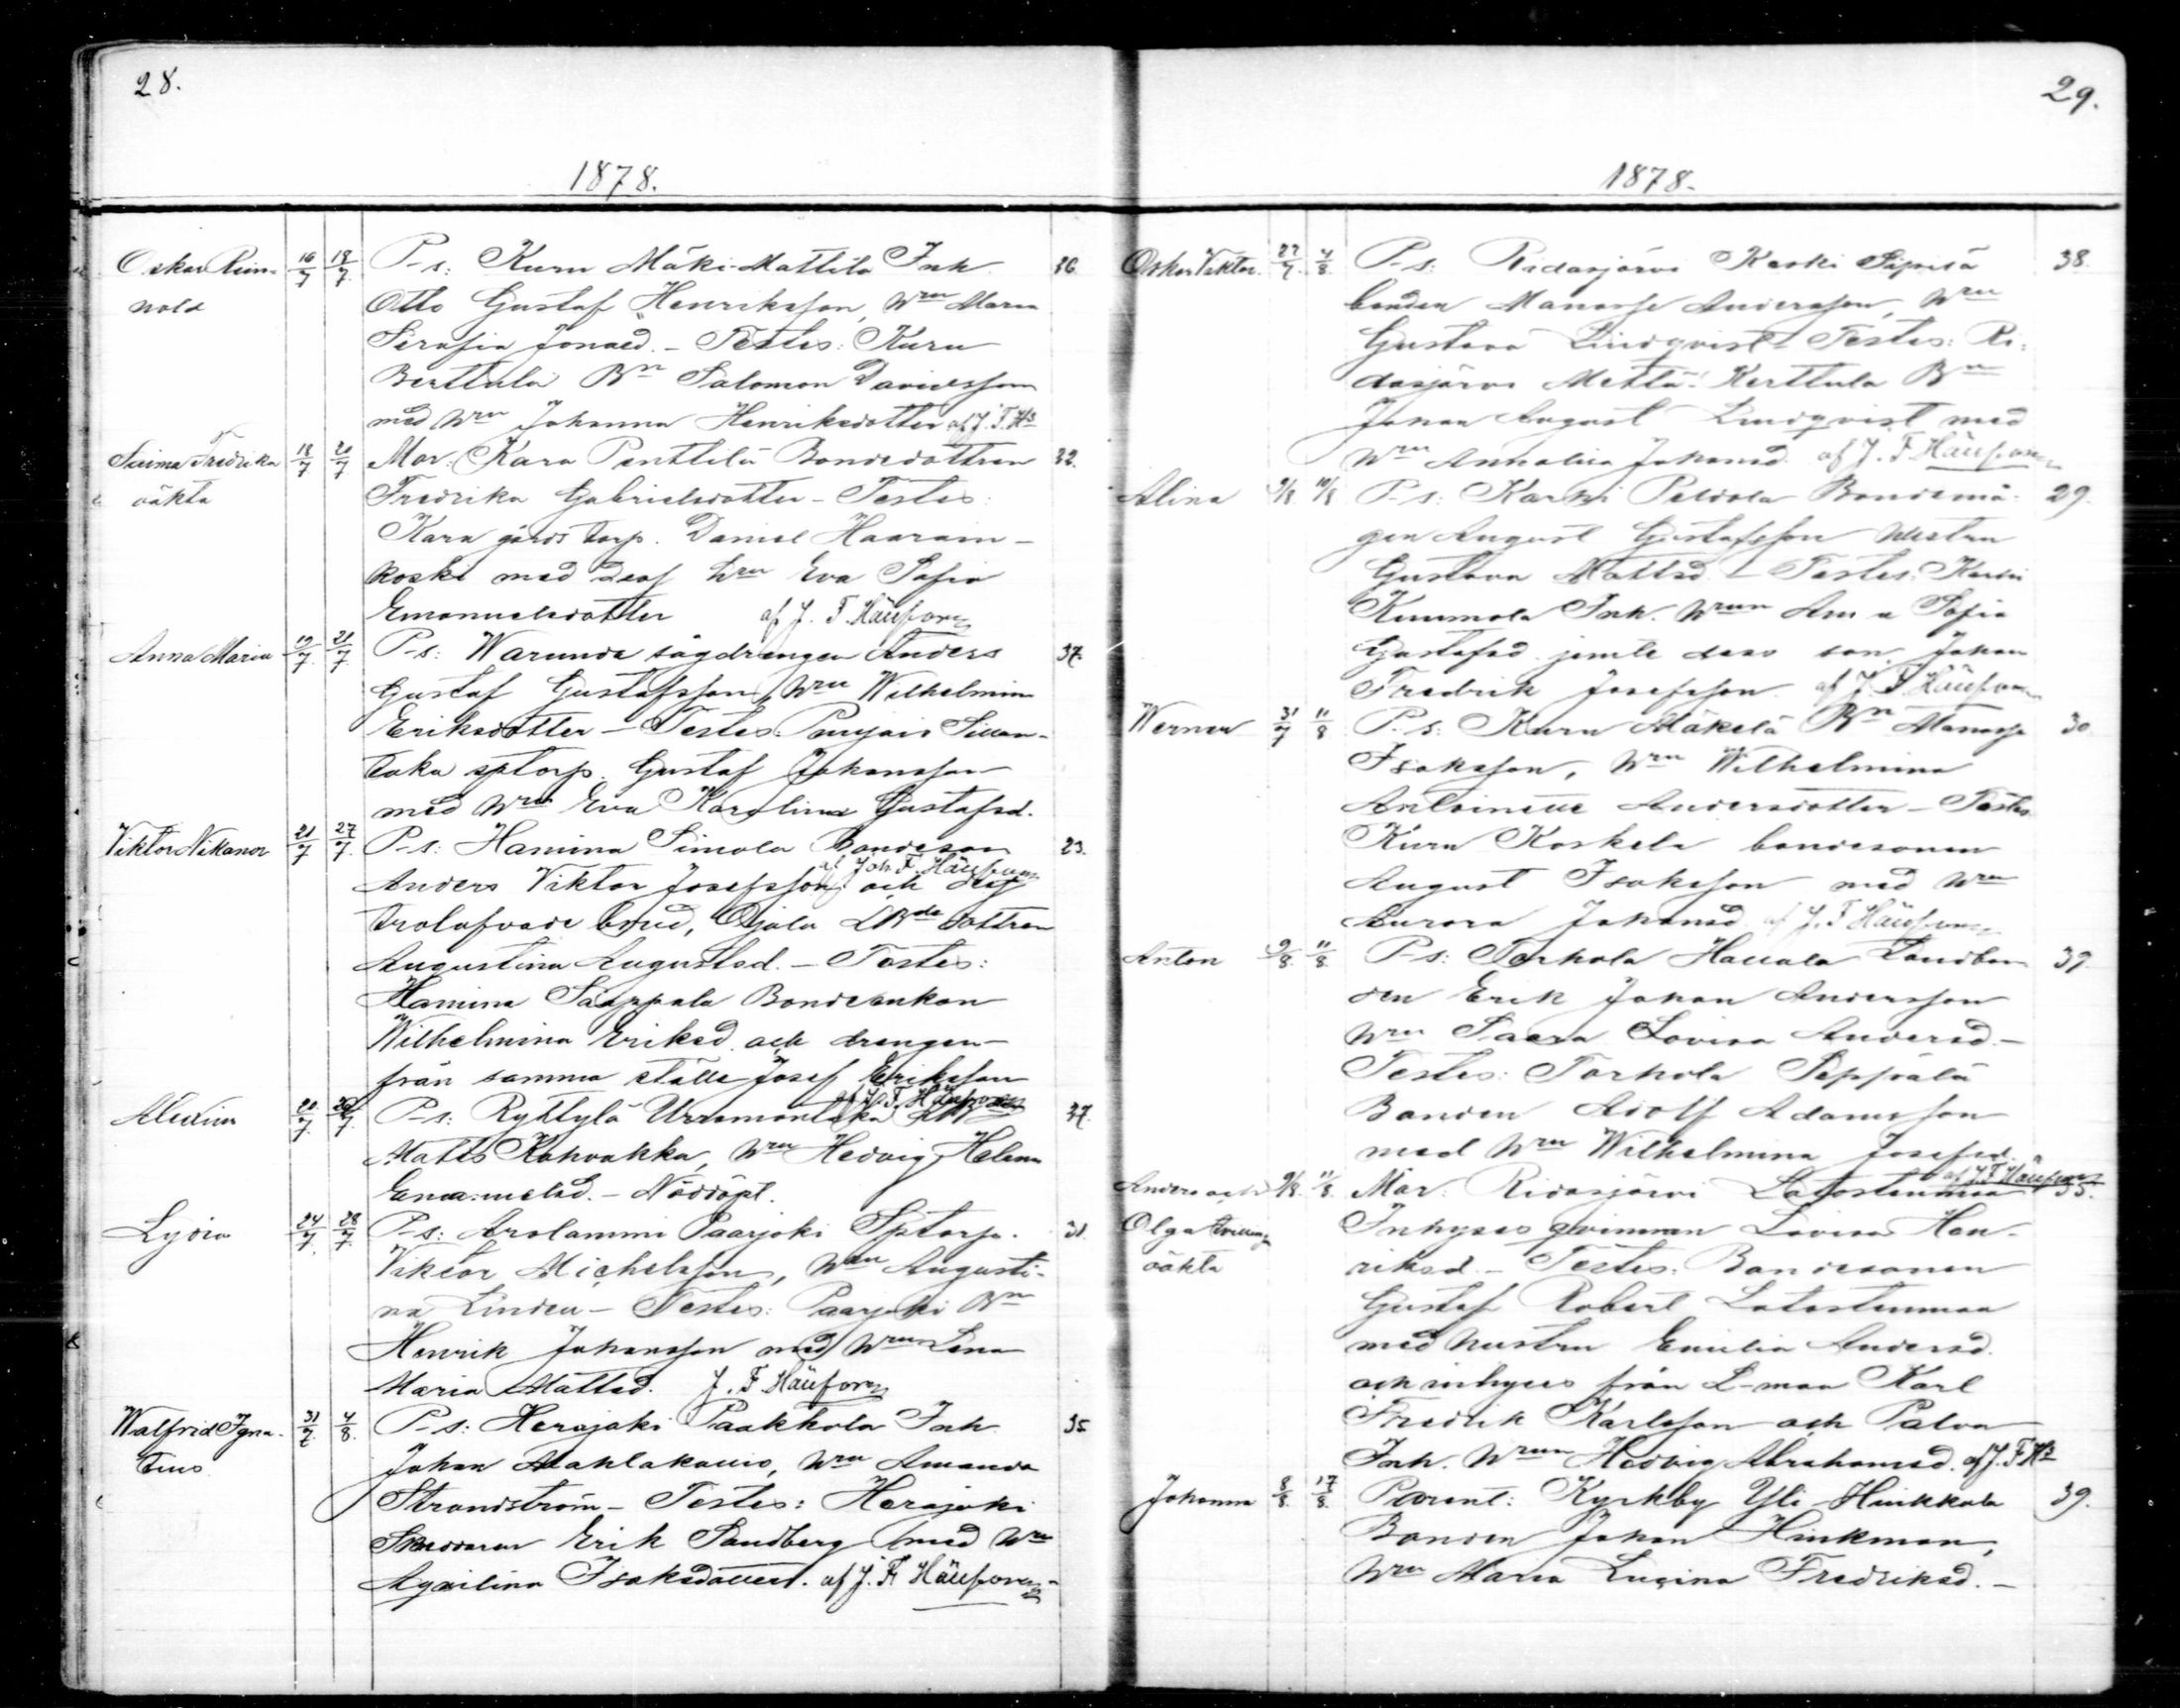 28.
1878.
Oskar Rein- 16/7 18/7 P-s: Kuru Mäki-Mattila Inh. 36.
nold Otto Gustaf Henriksson, Wru Maria
Serafia Jonaed. - Testes: Kuru
Berttula Bn Salomon Davidsson
med Wru Johanna Henriksdotter af J. F. Hs
Saima Fredrika 18/7 20/7 Mor: Kara Penttilä Bondedottren 32.
oäkta Fredrika Gabrielsdotter - Testes:
Kara gårds torp. Daniel Haarain-
koski med dess hru Eva Sofia
Emanuelsdotter af J. F. Häyrén
Anna Maria 19/7 21/7 P-s: Warunda sågdrengen Anders 37.
Gustaf Gustafsson, Wru Wilhelmina
Eriksdotter - Testes: Sillan-
taka sptorp. Gustaf Johansson
med Wru Eva Karolina Gustafsd.
Viktor Nikanor 21/7 27/7 P-s: Hamina Simola Bondeson 23.
Anders Viktor Josefsson och dess
trolofvade brud, Ojala LBde dottren
Augustina Augustsd. - Testes:
Hamina Saappala Bondeenkan
Wilhelmina Eriksd. och drengen
från samma ställe Josef Eriksson
Alexina 20/7 28/7 P-s: Ryttylä 37.
Matts Kahvakka, Wru Hedvig Helena
Emanuelsd. - Nöddöpt.
Lydia 24/7 28/7 P-s: Arolammi Paarjoki Sptorp. 31.
Viktor Michelsson, Wru Augusti-
na Linden - Testes: Paarjoki Bn
Henrik Johansson med Wru Lena
Maria Mattsd. J. F.
Walfrid Igna- 31/7 4/8 P-s: Herajoki Paakkola Inh. 35
tius Johan Wru Amanda
Strandström - Testes: Herajoki
Skräddaren Erik Sandberg med Wru
Axilina Isaksdotter. af J. F.
29.
1878.
Oskar Viktor 27/7 4/8 P-s: Ridasjärvi Kaski Seppälä 38.
bonden Manasse Andersson, Wru
Gustava Lindqvist - Testes: Ri-
dasjärvi Mettä-Kerttula Bn
Johan August Lindqvist med
Wru Annaliisa Johansd. af J. F.
Alina 9/8 10/8 P-s: Karhi Peldola Bondemå- 29.
gen August Gustafsson hustru
Gustava Mattsd. - Testes: Karhi
Kummola Inh. Wrun Anna Sofia
Gustafsd. jemte dess son Johan
Fredrik Josefsson. af J. F.
Werner 31/7 11/8 P-s: Kuru Mäkelä Bn Manasse 30
Isaksson, Wru Wilhelmina
Antoinette Andersdotter - Testes
Kuru Koskela bondesonen
August Isaksson med Wru
Aurora Johansd. af J. F.
Anton 9/8 11/8 P-s: Torhola Hauala Landbon- 39.
den Erik Johan Andersson
Wru Saara Lovisa Andersd. -
Testes: Torhola Seppälä
Bonden Adolf Adamsson
med Wru Wilhelmina Josefsd.
Anders och 9/8 11/8 Mor: Ridasjärvi Latostenmaa 35.
Olga tvilling Inhyses qvinnan Lovisa Hen-
oäkta riksd. - Testes: Bondesonen
Gustaf Robert Latostenmaa
med hustru Emilia Andersd.
och inhyses från L-maa Karl
Fredrik Karlsson och Palva
Inh. Wrun Hedvig Abrahamsd. af J. F. Hs
Johanna 8/8 17/8 Parent: Kyrkby Yli-Hinkkala 39.
Bonden Johan Hinkman,
Wru Maria Lusina Fredriksd. -